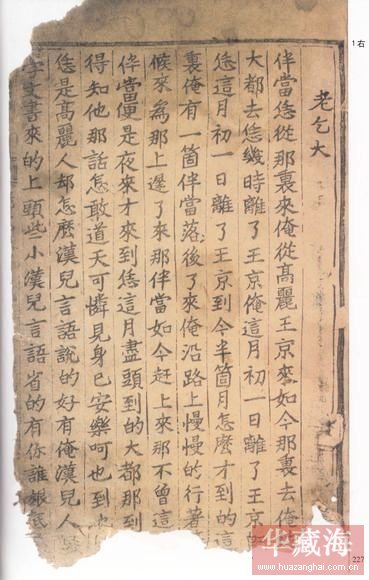 1右
老乞大
伴當恁從那裏來俺從高麗王京來如今那裏去俺
大都去恁幾時離了王京俺這月初一日離了王京的
恁這月初一日離了王京到今半箇月怎麼才到的這
裏俺有一箇伴當落後了來俺沿路上慢慢的行著
候來爲那上遲了來那伴當如今赶上來那不曾這
伴當便是夜來才來到恁這月盡頭到的大都那到
得知他那話怎敢道天可憐見身己安樂呵也到
恁是高麗人却怎麼漢兒言語說的好有俺漢兒人
字文書來的上頭些小漢兒言語省的有你誰
227
华藏海
www.huazanghai.com